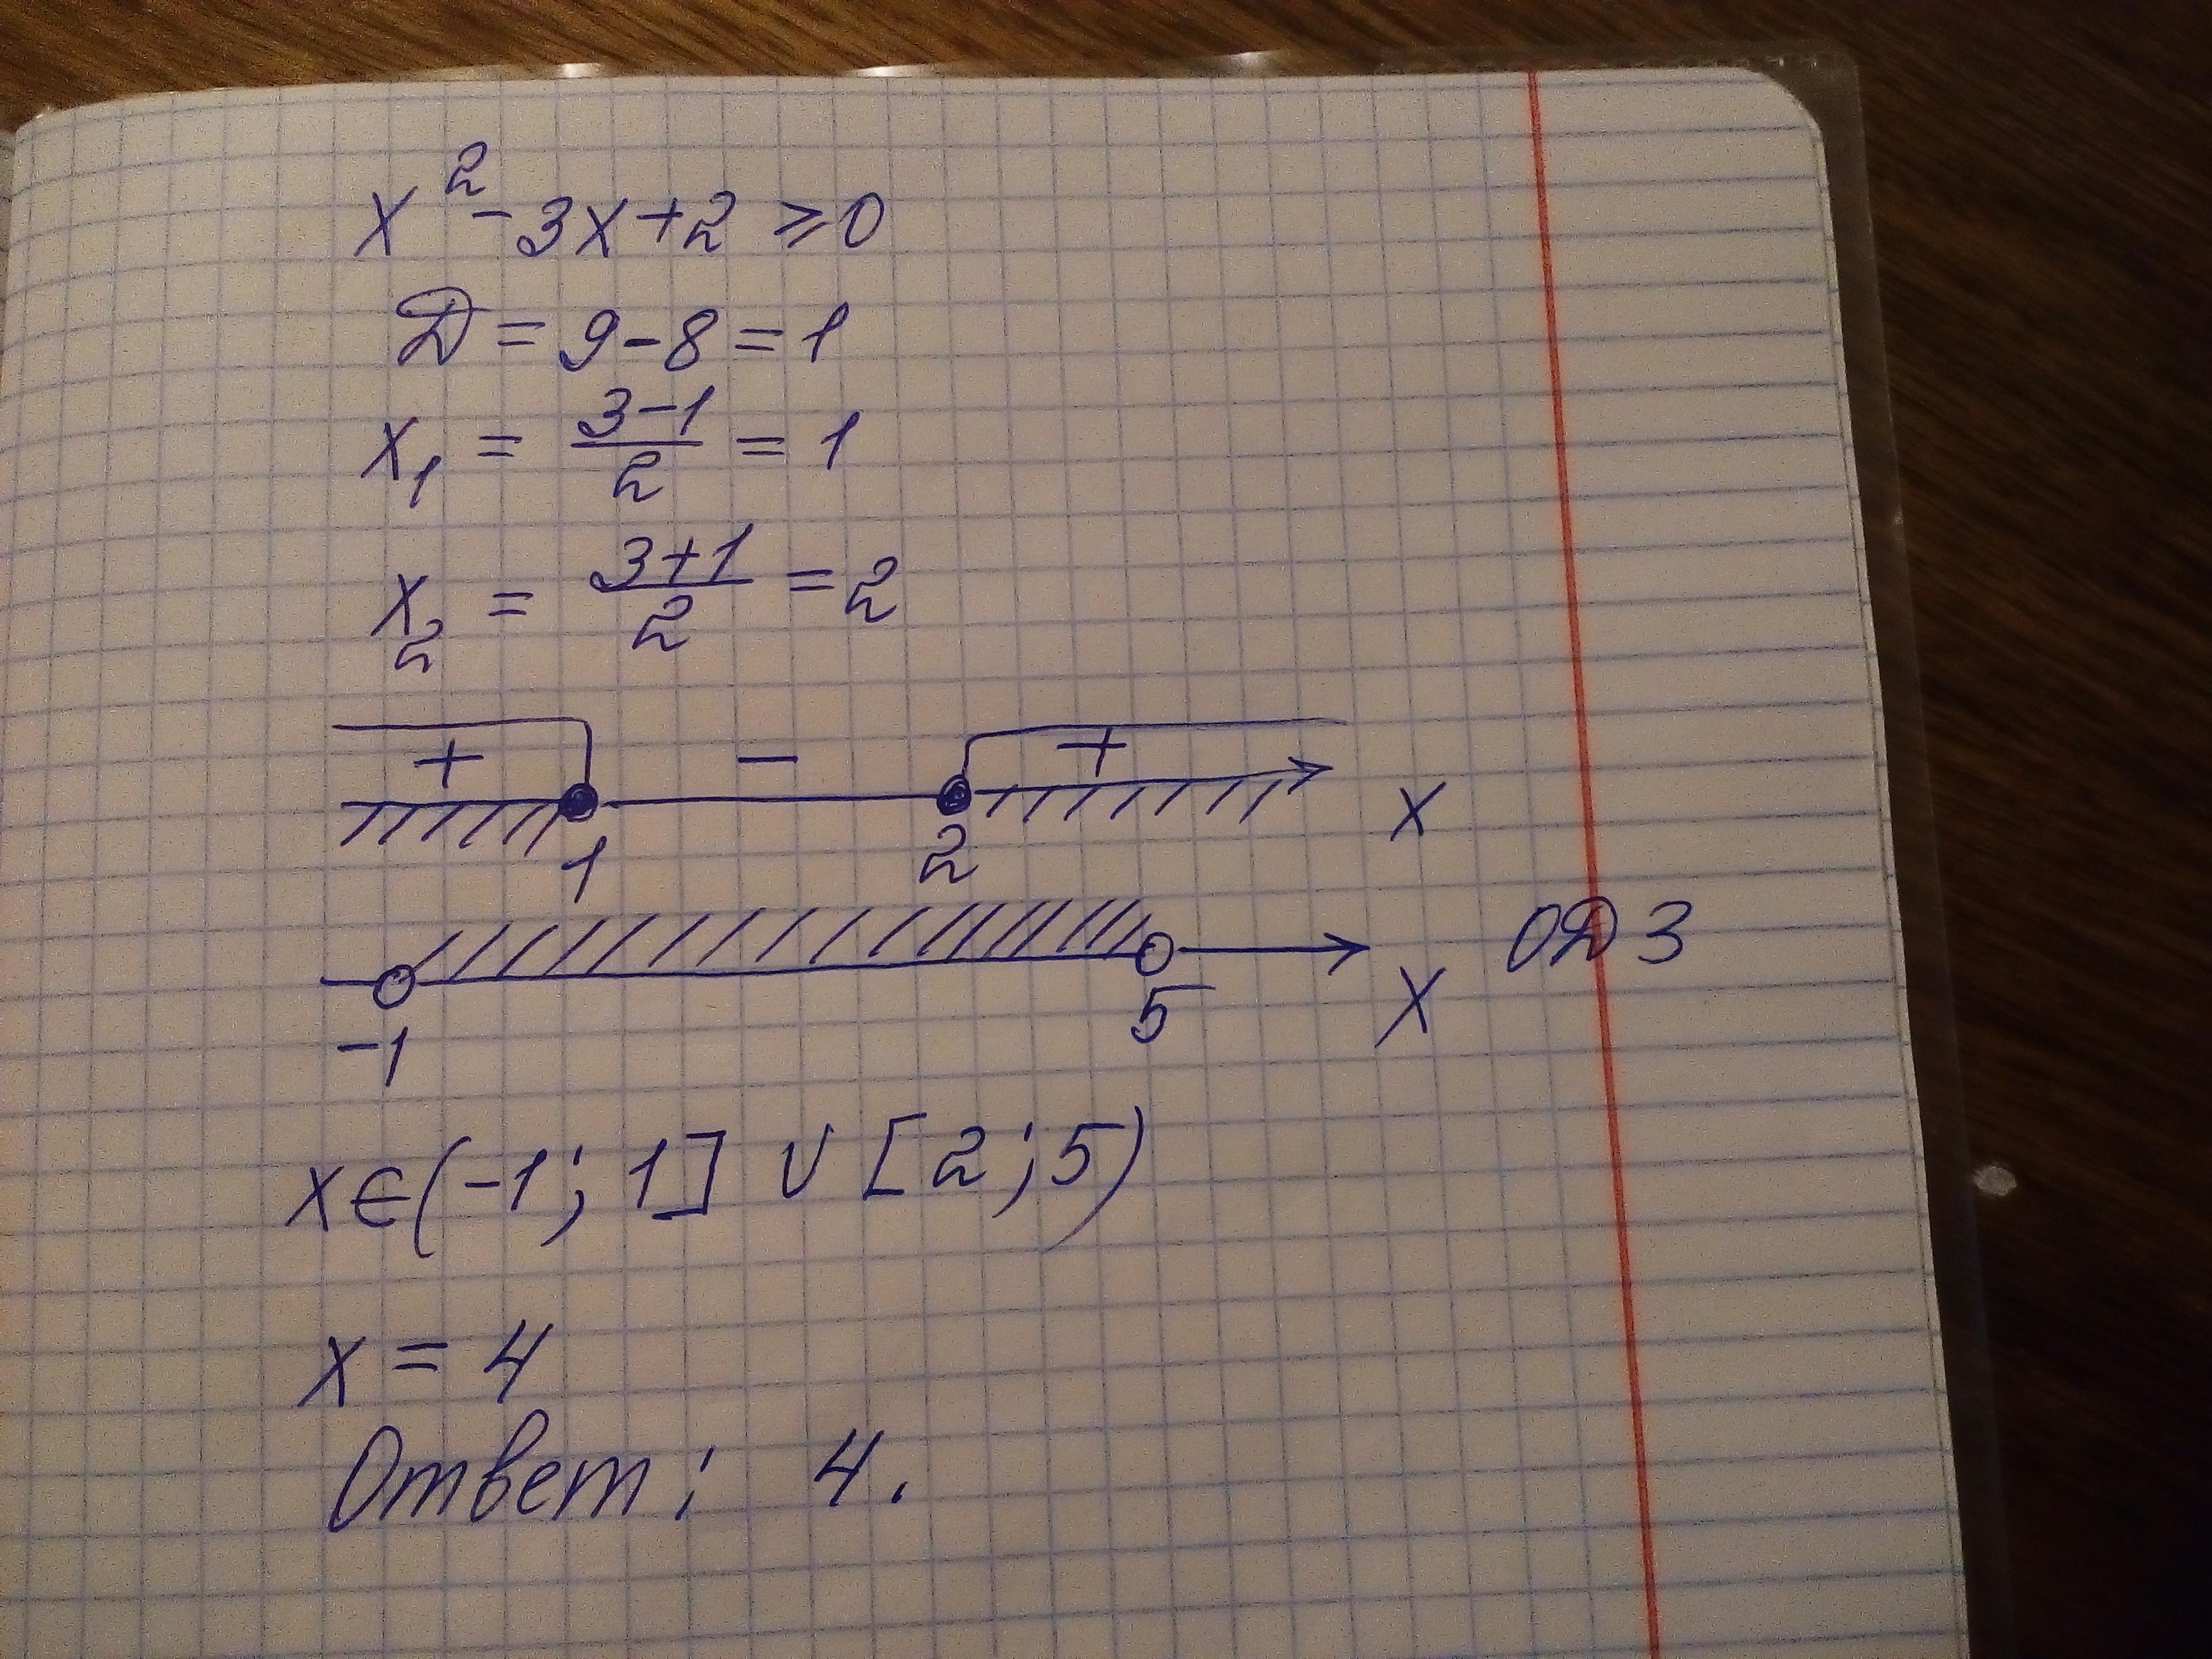 x² - 3x + 2 ⩾ 0
D = 9 - 8 = 1
x₁ = (3-1)/2 = 1
x₂ = (3+1)/2 = 2
+ - +
1 2 x
ОДЗ
-1 5 x
x ∈ (-1; 1] ∪ [2; 5)
x = 4
Ответ: 4.